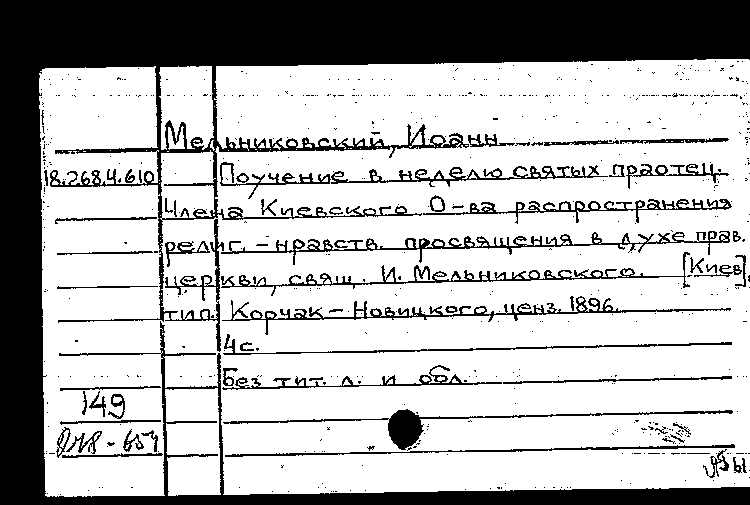 Мельниковский, Иоанн
18.268.4.610
Поучение в неделю святых праотец.
Члена Киевского О-ва распространения
религ.-нравств. просвящения в духе прав.
церкви, свящ. И. Мельниковского. [Киев],
тип. Корчак-Новицкого, ценз. 1896.
4с.
Без тит. л. и обл.
149